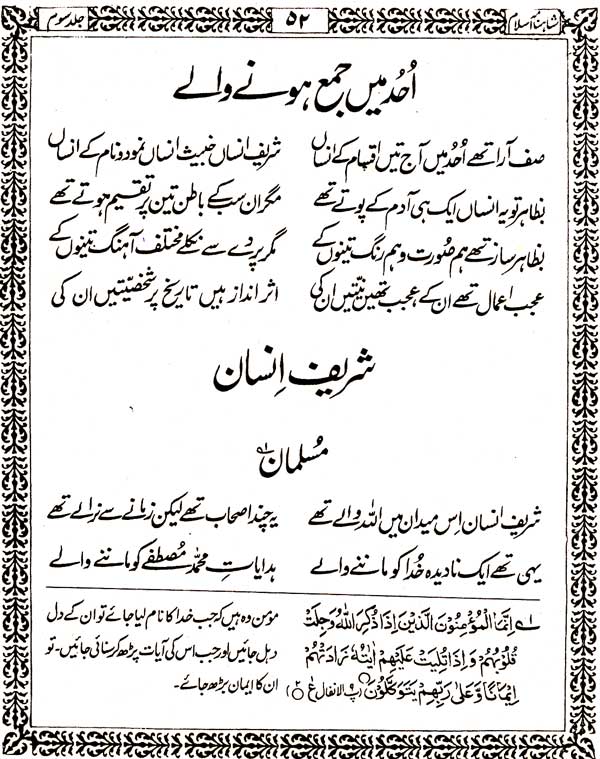 شاہنامہ اسلام ۵۲ جلد سوم
اُحُد میں جمع ہونے والے
صف آرا تھے اُحُد میں آج تین اقسام کے انساں شریف انساں خبیث انساں نمود و نام کے انساں
بظاہر تو یہ انساں ایک ہی آدم کے پوتے تھے مگر ان سب کے باطن تین پر تقسیم ہوتے تھے
بظاہر ساز تھے ہم صُورت و ہم رنگ تینوں کے مگر پردے سے نکلے مختلف آہنگ تینوں کے
عجب اعمال تھے ان کے عجب تھیں نیّتیں ان کی اثر انداز ہیں تاریخ پر شخصیّتیں ان کی
شریف اِنسان
مُسلمان ؎۱
شریف انسان اِس میدان میں اللہ والے تھے یہ چند اصحاب تھے لیکن زمانے سے نرالے تھے
یہی تھے ایک نادیدہ خُدا کو ماننے والے ہدایاتِ محمدؐ مُصطفےٰ کو ماننے والے
؎۱ اِنَّمَا الْمُؤْمِنُوْنَ الَّذِیْنَ اِذَا ذُکِرَ اللّٰهُ وَجِلَتْ
قُلُوْبُهُمْ وَاِذَا تُلِیَتْ عَلَیْهِمْ اٰیٰتُهٗ زَادَتْهُمْ
اِیْمَانًا وَّعَلٰی رَبِّهِمْ یَتَوَکَّلُوْنَ (پ۹ الانفال ع ۲)
مومن وہ ہیں کہ جب خدا کا نام لیا جائے تو ان کے دل
دہل جائیں اور جب اس کی آیات پڑھ کر سنائی جائیں۔ تو
ان کا ایمان بڑھ جائے۔